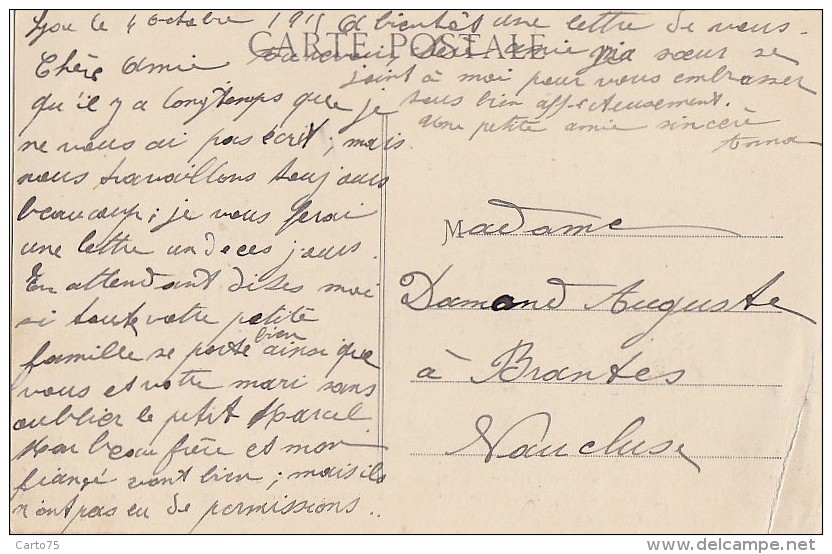 le 4 octobre 1915
CARTE POSTALE
Chère Amie
qu'il y a longtemps que je
ne vous ai pas écrit, mais
nous travaillons toujours
beaucoup; je vous ferai
une lettre un de ces jours.
En attendant dites moi
si toute votre petite
famille se porte bien ainsi que
vous et votre mari sans
oublier le petit Marcel
Mon beau frère et mon
fiancé vont bien; mais ils
n'ont pas eu de permissions..
A bientôt une lettre de vous.
Au revoir chère amie ma sœur se
joint à moi pour vous embrasser
tous bien affectueusement.
Une petite amie sincère
Anna
Madame
Damond Auguste
à Brantes
Vaucluse
Carto75
www.delcampe.net